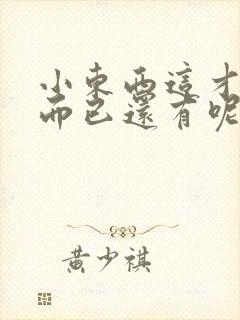 小東西這才
而已還有呢
黃少祺